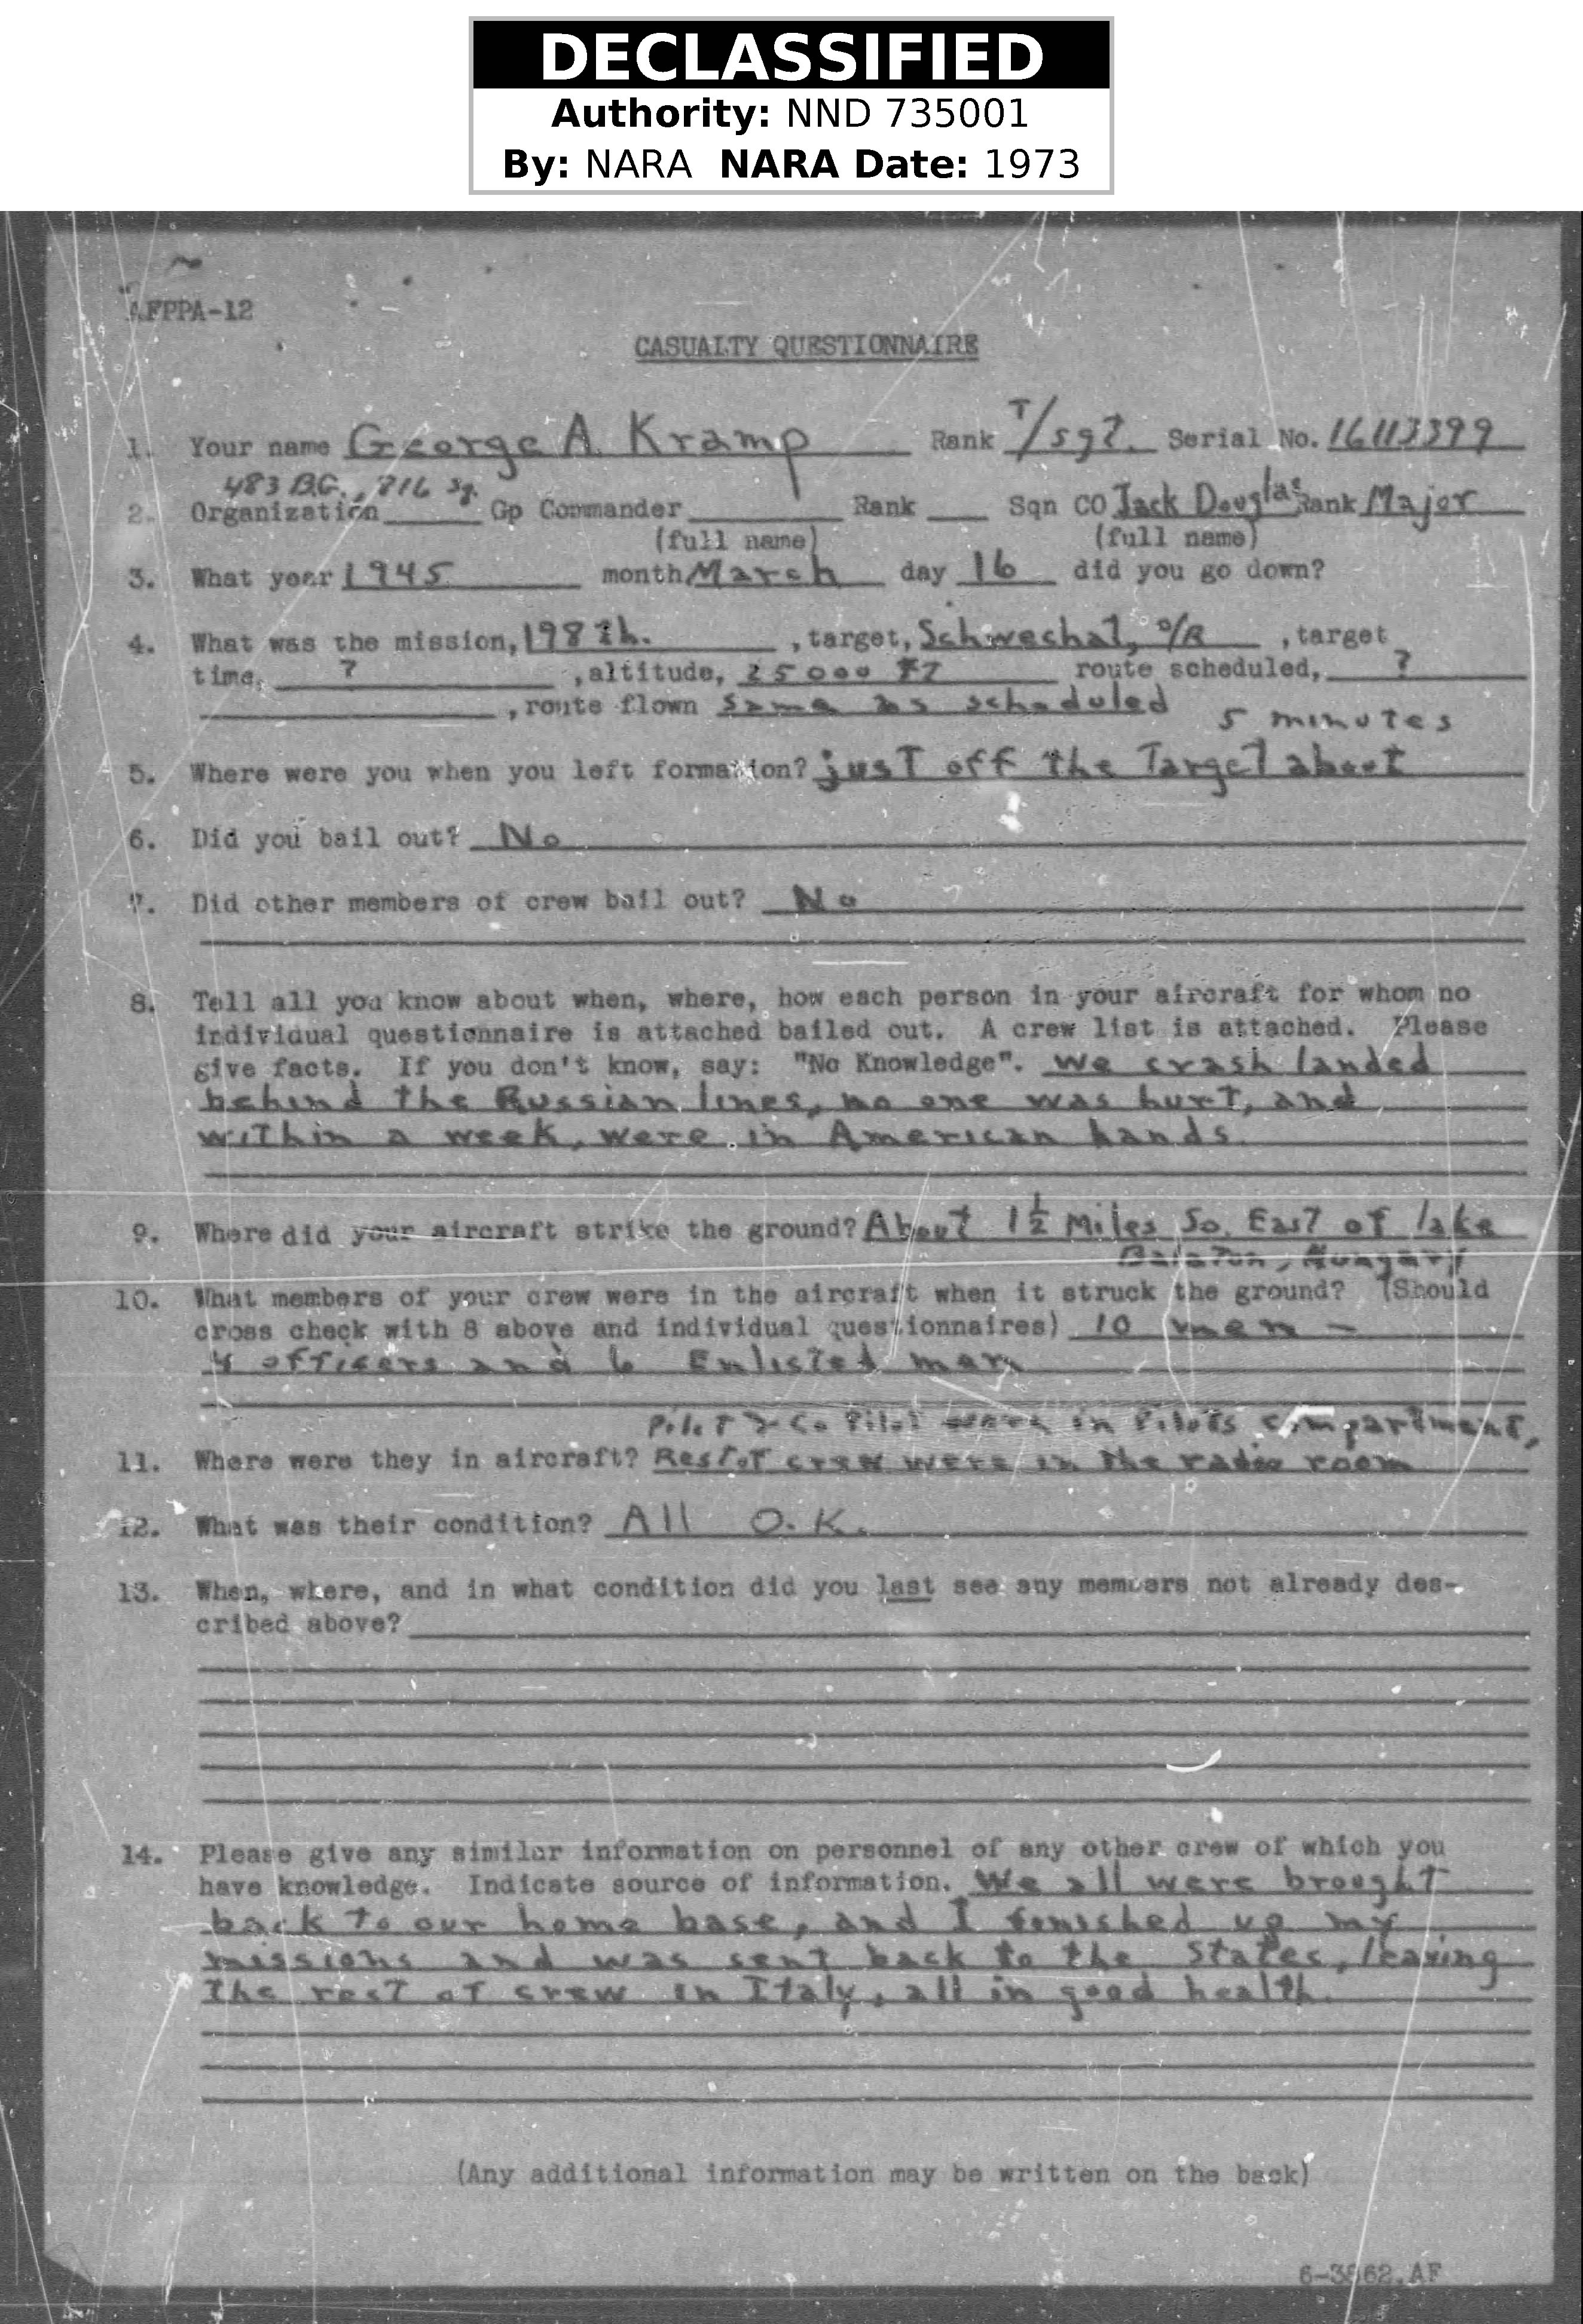 DECLASSIFIED
Authority: NND 735001
By: NARA NARA Date: 1973
AFPPA-12
CASUALTY QUESTIONNAIRE
1. Your name George A Kramp Rank T/sgt. Serial No. 16113399
483 B.G., 816 Sq.
2. Organization Gp Commander Rank Sqn CO Jack Douglas Rank Major
(full name) (full name)
3. What year 1945 month March day 16 did you go down?
4. What was the mission, 198th. , target, Schwechat, O/R , target
time, ? , altitude, 25000 FT route scheduled, ?
, route flown Same as scheduled
5 minutes
5. Where were you when you left formation? just off the Target about
6. Did you bail out? No
7. Did other members of crew bail out? No
8. Tell all you know about when, where, how each person in your aircraft for whom no
individual questionnaire is attached bailed out. A crew list is attached. Please
give facts. If you don't know, say: "No Knowledge". We crash landed
behind the Russian lines, no one was hurt, and
within a week, were in American hands.
9. Where did your aircraft strike the ground? About 1½ Miles So. East of lake
Balaton, Hungary
10. What members of your crew were in the aircraft when it struck the ground? (Should
cross check with 8 above and individual questionnaires) 10 men -
4 officers and 6 Enlisted men
Pilot & Co Pilot were in Pilots compartment,
11. Where were they in aircraft? Rest of crew were in the radio room
12. What was their condition? All O.K.
13. When, where, and in what condition did you last see any members not already des-
cribed above?
14. Please give any similar information on personnel of any other crew of which you
have knowledge. Indicate source of information. We all were brought
back to our home base, and I finished up my
missions and was sent back to the States, leaving
the rest of crew in Italy, all in good health.
(Any additional information may be written on the back)
6-3862,AF